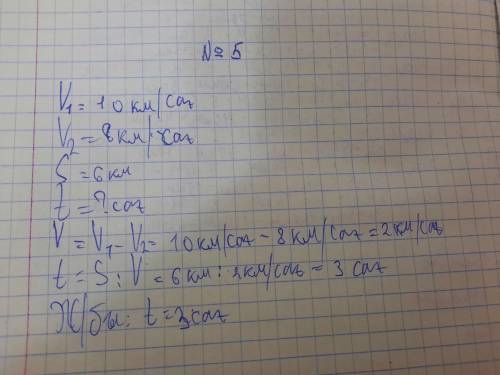 № 5
V₁ = 10 км/сағ
V₂ = 8 км/сағ
S = 6 км
t = ? сағ
V = V₁ - V₂ = 10 км/сағ - 8 км/сағ = 2 км/сағ
t = S : V = 6 км : 2 км/сағ = 3 сағ
Ж/бы: t = 3 сағ